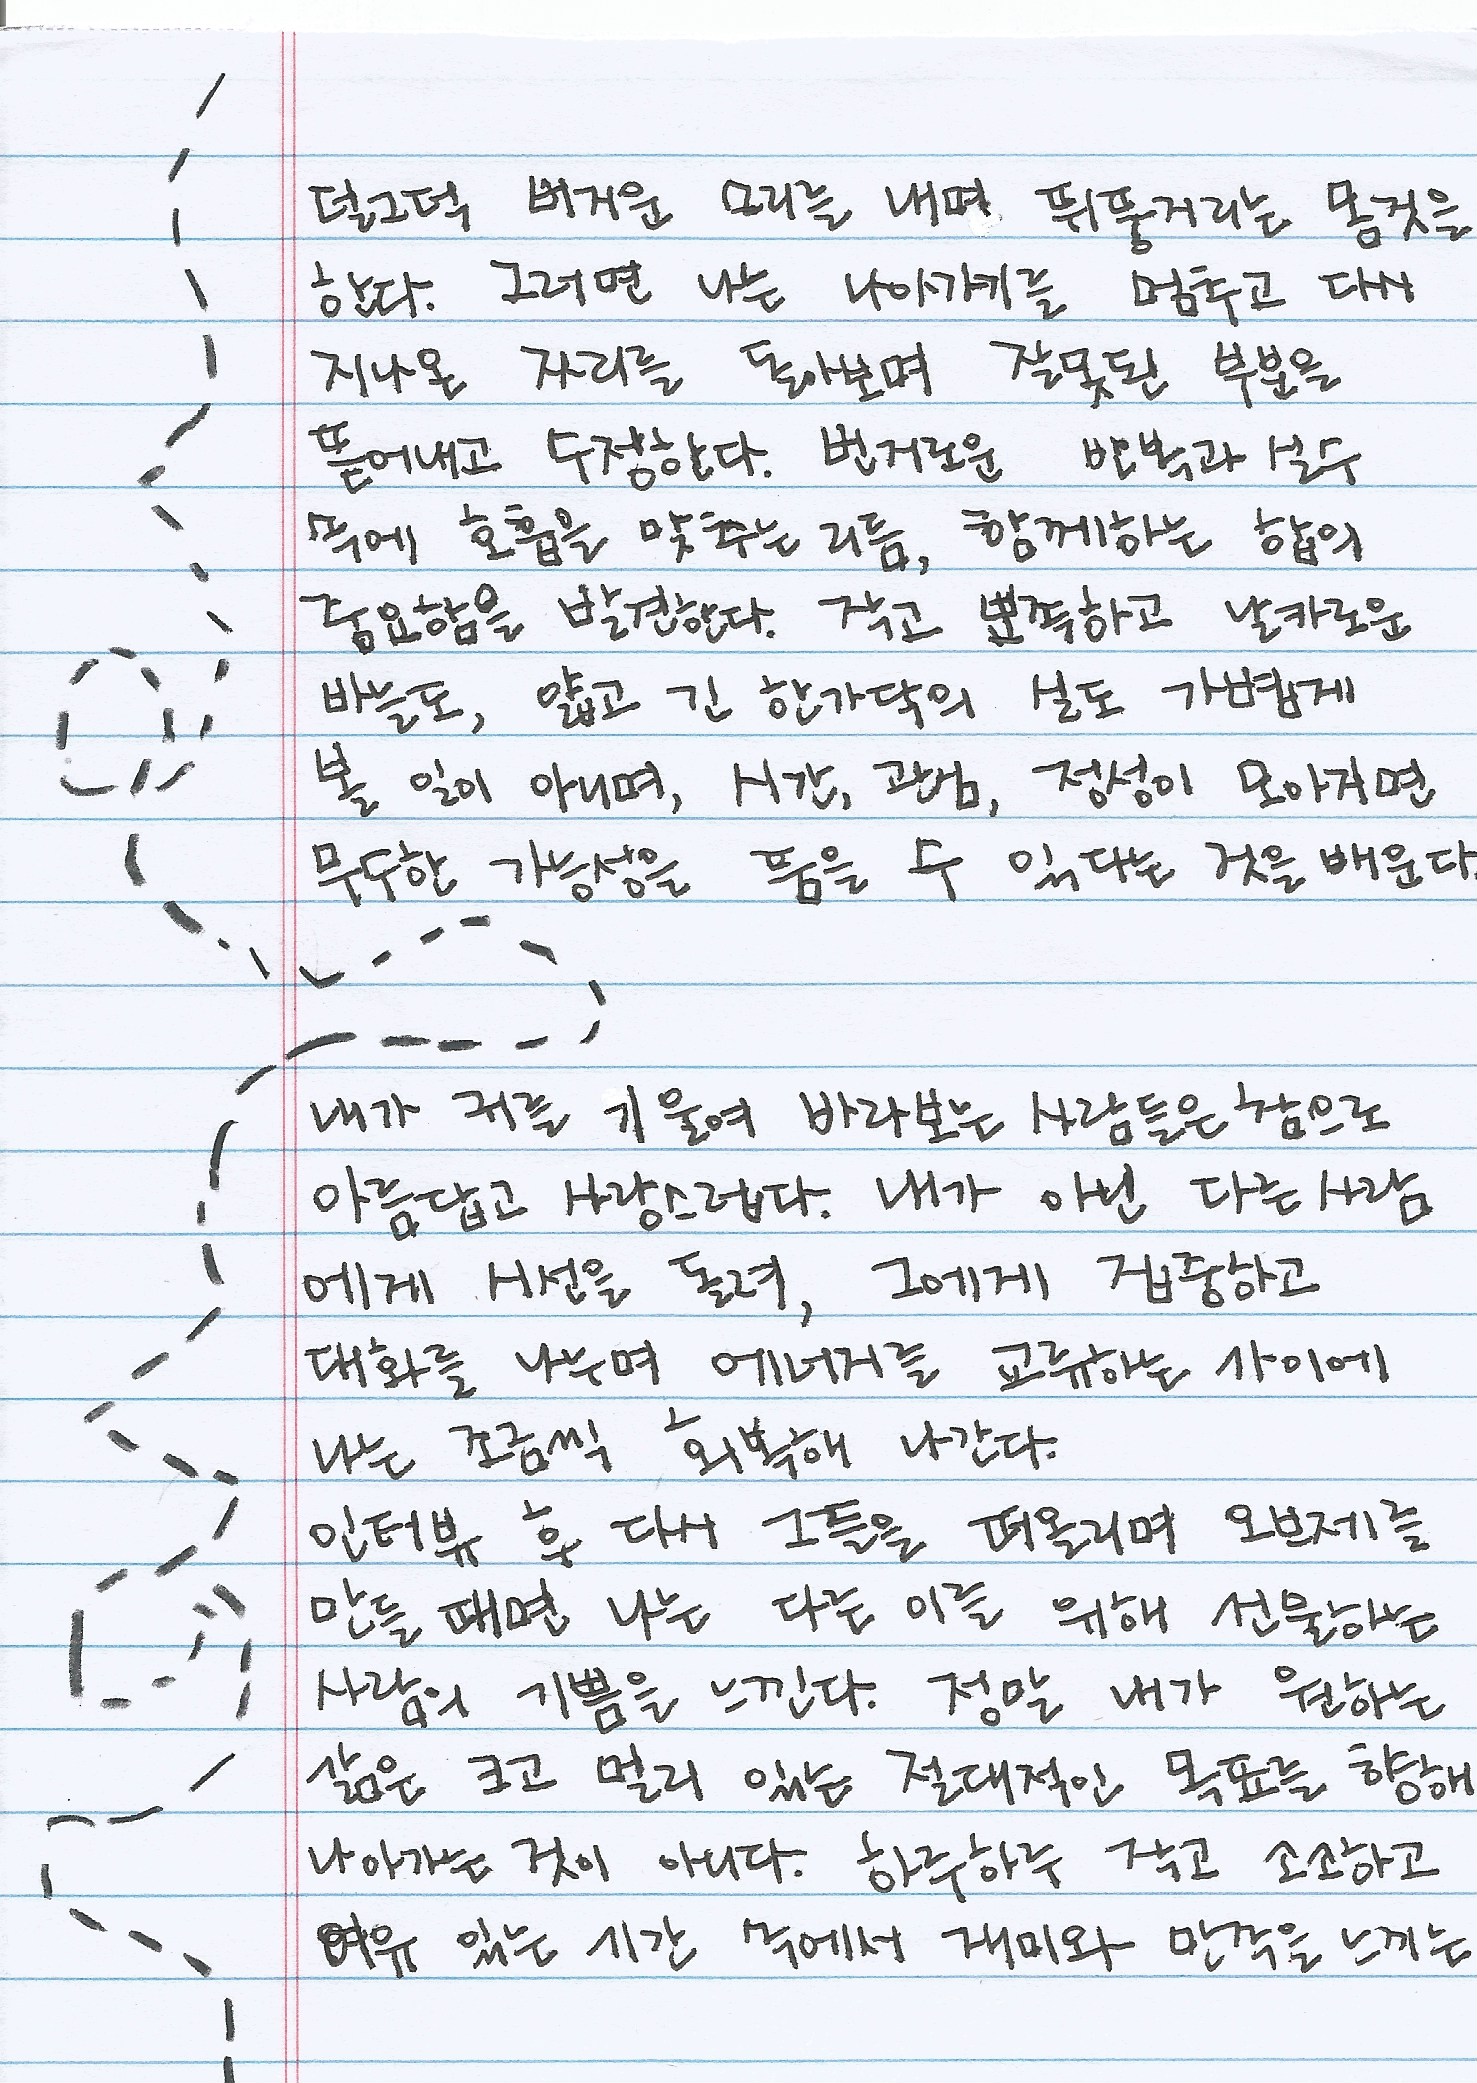 덜그덕 버거운 소리를 내면 뛰뚱거리는 몸짓을
한다. 그러면 나는 나아가기를 멈추고 다시
지나온 자리를 돌아보며 잘못된 부분을
뜯어내고 수정한다. 번거로운 반복과 실수
속에 호흡을 맞추는 리듬, 함께하는 합의
중요함을 발견한다. 작고 뾰족하고 날카로운
바늘도, 얇고 긴 한가닥의 실도 가볍게
볼 일이 아니며, 시간, 관심, 정성이 모아지면
무수한 가능성을 품을 수 있다는 것을 배운다.
내가 귀를 기울여 바라보는 사람들은 참으로
아름답고 사랑스럽다. 내가 아닌 다른 사람
에게 시선을 돌려, 그에게 집중하고
대화를 나누며 에너지를 교류하는 사이에
나는 조금씩 회복해 나간다.
인터뷰 후 다시 그들을 떠올리며 오브제를
만들 때면 나는 다른 이를 위해 선물하는
사람의 기쁨을 느낀다. 정말 내가 원하는
삶은 크고 멀리 있는 절대적인 목표를 향해
나아가는 것이 아니다. 하루하루 작고 소소하고
여유 있는 시간 속에서 재미와 만족을 느끼는